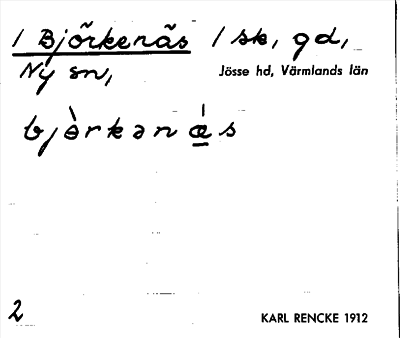 1 Björkenäs 1 sk, gd,
Ny sn,
Jösse hd, Värmlands län
bjə̀rkənǽ̲s
2
KARL RENCKE 1912